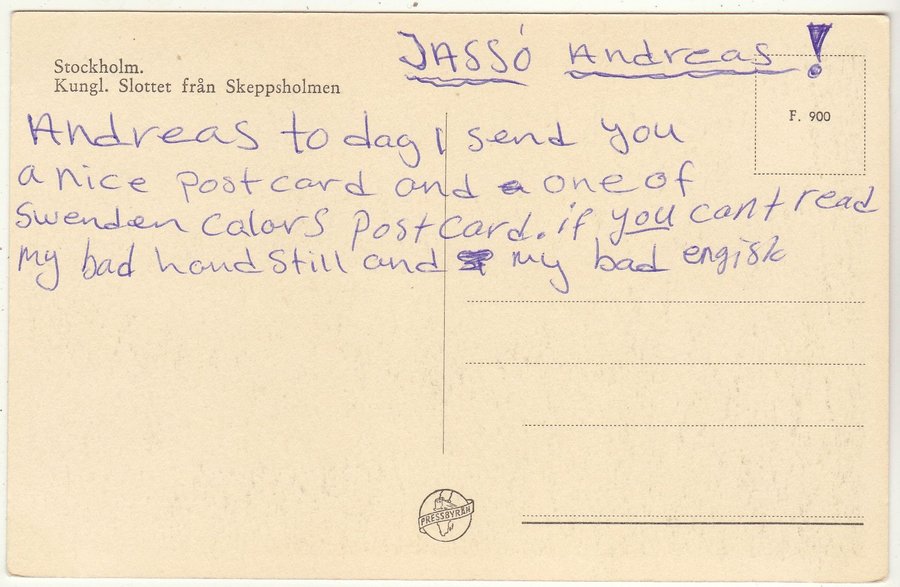 JASSÓ Andreas!
Stockholm.
Kungl. Slottet från Skeppsholmen
F. 900
Andreas to dag I send you
a nice postcard and a one of
Swenden calors Postcard. if you cant read
my bad handstill and my bad engisk
PRESSBYRÅN